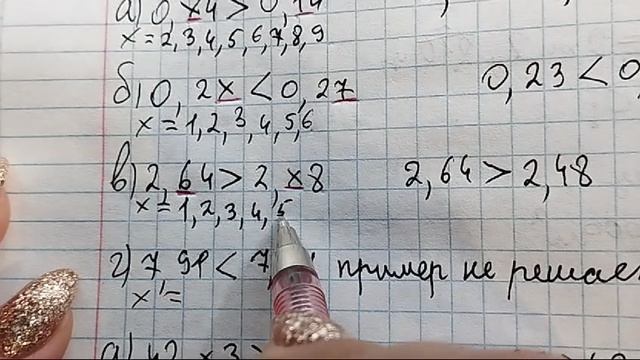 а) 0, х4 > 0, 14
х = 2, 3, 4, 5, 6, 7, 8, 9
б) 0, 2х < 0, 27
0, 23 < 0,
х = 1, 2, 3, 4, 5, 6
в) 2, 64 > 2, х8
2, 64 > 2, 48
х = 1, 2, 3, 4, 5
г) 7, 91 < 7,
пример не решае
х =
х3 >